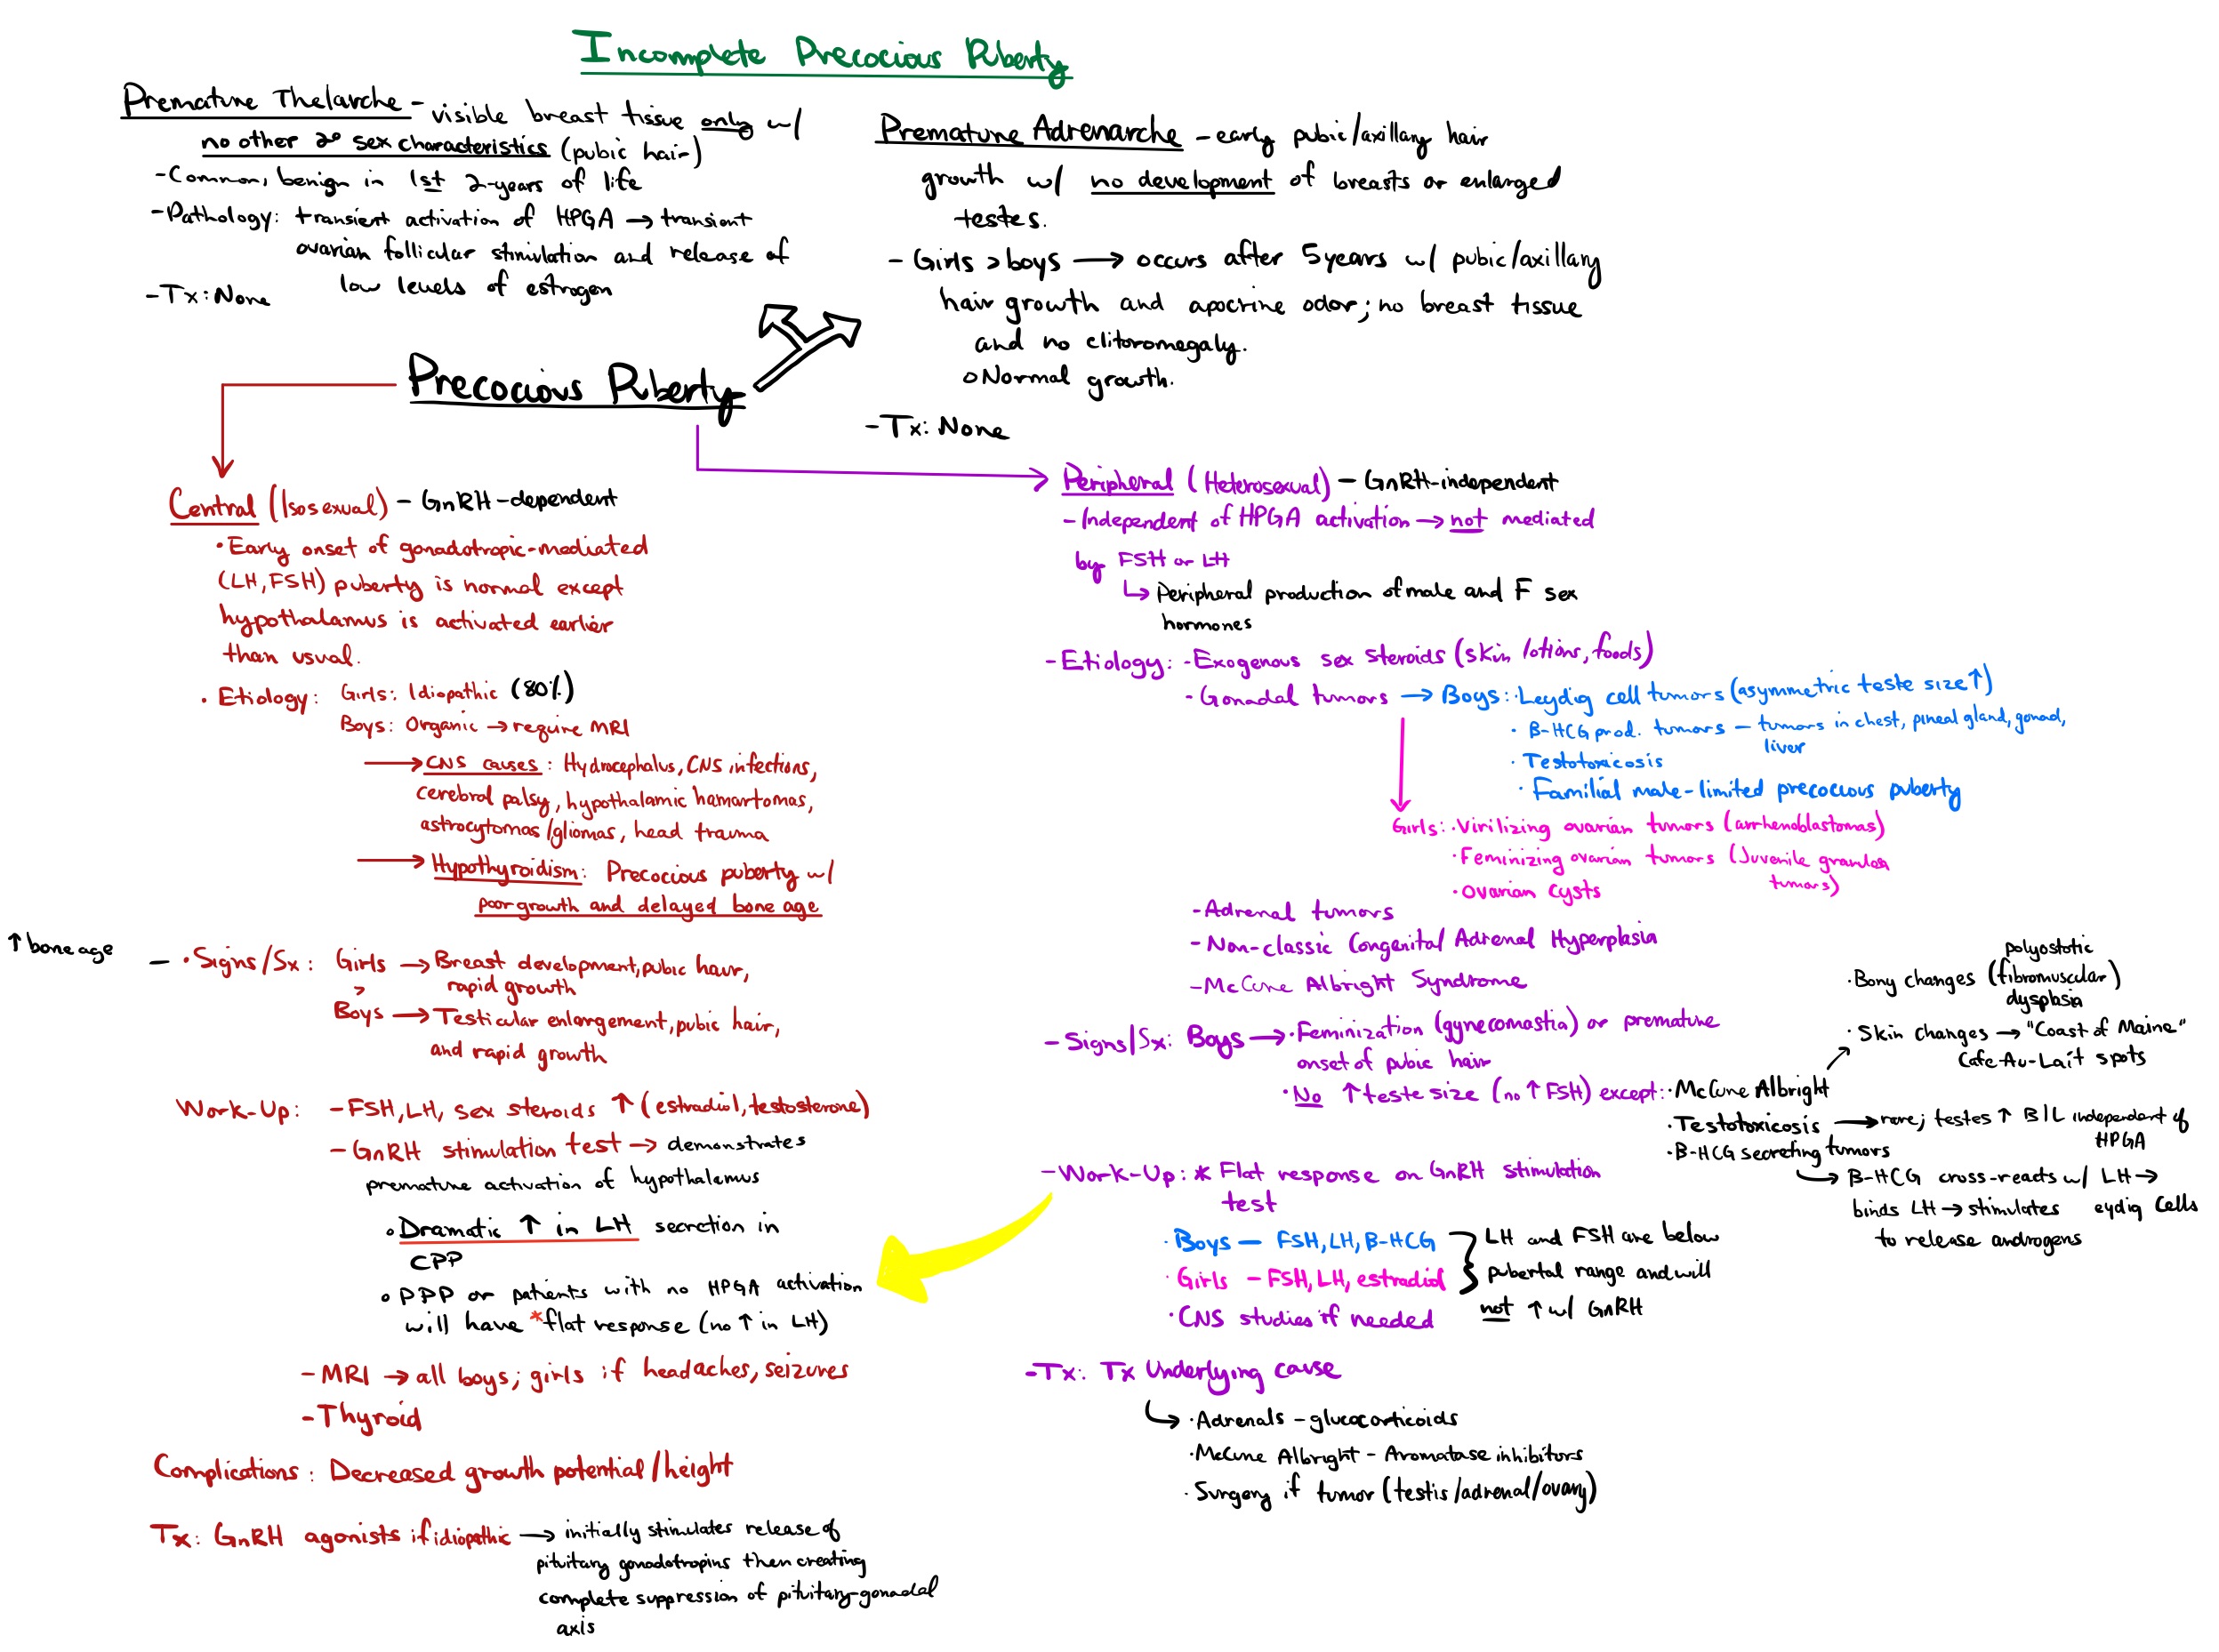 Incomplete Precocious Puberty
Premature Thelarche - visible breast tissue only w/
no other 2° sex characteristics (pubic hair)
- Common, benign in 1st 2-years of life
- Pathology: transient activation of HPGA → transient
ovarian follicular stimulation and release of
low levels of estrogen
- Tx: None
Premature Adrenarche - early pubic/axillary hair
growth w/ no development of breasts or enlarged
testes.
- Girls > boys → occurs after 5 years w/ pubic/axillary
hair growth and apocrine odor; no breast tissue
and no clitoromegaly.
o Normal growth.
- Tx: None
Precocious Puberty
Central (Isosexual) - GnRH-dependent
• Early onset of gonadotropic-mediated
(LH, FSH) puberty is normal except
hypothalamus is activated earlier
than usual.
• Etiology: Girls: Idiopathic (80%)
Boys: Organic → require MRI
→ CNS causes: Hydrocephalus, CNS infections,
cerebral palsy, hypothalamic hamartomas,
astrocytomas/gliomas, head trauma
→ Hypothyroidism: Precocious puberty w/
poor growth and delayed bone age
↑ bone age
- • Signs/Sx: Girls → Breast development, pubic hair,
rapid growth
>
Boys → Testicular enlargement, pubic hair,
and rapid growth
Work-Up: - FSH, LH, sex steroids ↑ (estradiol, testosterone)
- GnRH stimulation test → demonstrates
premature activation of hypothalamus
o Dramatic ↑ in LH secretion in
CPP
o PPP or patients with no HPGA activation
will have *flat response (no ↑ in LH)
- MRI → all boys; girls if headaches, seizures
- Thyroid
Complications: Decreased growth potential/height
Tx: GnRH agonists if idiopathic → initially stimulates release of
pituitary gonadotropins then creating
complete suppression of pituitary-gonadal
axis
Peripheral (Heterosexual) - GnRH-independent
- Independent of HPGA activation → not mediated
by FSH or LH
↳ Peripheral production of male and F sex
hormones
- Etiology: - Exogenous sex steroids (skin lotions, foods)
- Gonadal tumors → Boys: • Leydig cell tumors (asymmetric teste size ↑)
• B-HCG prod. tumors - tumors in chest, pineal gland, gonad,
liver
• Testotoxicosis
• Familial male-limited precocious puberty
Girls: • Virilizing ovarian tumors (arrhenoblastomas)
• Feminizing ovarian tumors (Juvenile granulosa
tumors)
• Ovarian cysts
- Adrenal tumors
- Non-classic Congenital Adrenal Hyperplasia
- McCune Albright Syndrome
- Signs/Sx: Boys → • Feminization (gynecomastia) or premature
onset of pubic hair
• No ↑ teste size (no ↑ FSH) except: • McCune Albright
polyostotic
• Bony changes (fibromuscular)
dysplasia
• Skin changes → "Coast of Maine"
Cafe-Au-Lait spots
• Testotoxicosis → rare; testes ↑ B/L independent of
HPGA
• B-HCG secreting tumors
↳ B-HCG cross-reacts w/ LH →
binds LH → stimulates eydig cells
to release androgens
- Work-Up: * Flat response on GnRH stimulation
test
• Boys - FSH, LH, B-HCG
• Girls - FSH, LH, estradiol
• CNS studies if needed
LH and FSH are below
pubertal range and will
not ↑ w/ GnRH
- Tx: Tx Underlying cause
↳ • Adrenals - glucocorticoids
• McCune Albright - Aromatase inhibitors
• Surgery if tumor (testis/adrenal/ovary)